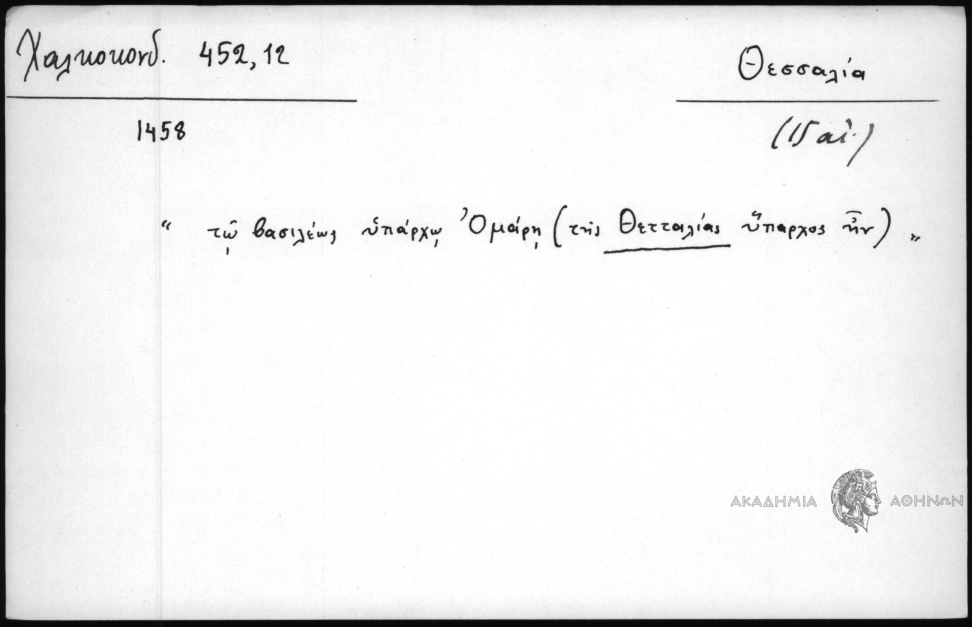 Χαλκοκονδ. 452,12
Θεσσαλία
1458
(15 αἰ.)
“ τῷ βασιλέως ὑπάρχῳ Ὀμάρῃ (τῆς Θετταλίας ὕπαρχος ἦν) „
ΑΚΑΔΗΜΙΑ ΑΘΗΝΩΝ